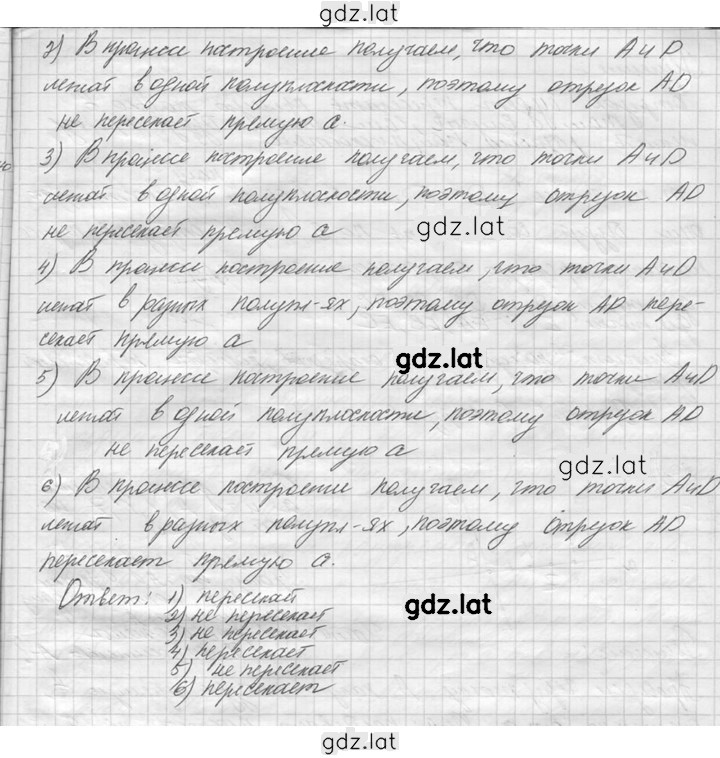 gdz.lat
2) В процессе построение получаем, что точки A и D
лежат в одной полуплоскости, поэтому отрезок AD
не пересекает прямую a.
3) В процессе построение получаем, что точки A и D
лежат в одной полуплоскости, поэтому отрезок AD
не пересекает прямую a
gdz.lat
4) В процессе построение получаем, что точки A и D
лежат в разных полупл-ях, поэтому отрезок AD пере-
секает прямую a
gdz.lat
5) В процессе построение получаем, что точки A и D
лежат в одной полуплоскости, поэтому отрезок AD
не пересекает прямую a
gdz.lat
6) В процессе построение получаем, что точки A и D
лежат в разных полупл-ях, поэтому отрезок AD
пересекает прямую a.
Ответ: 1) пересекает
2) не пересекает
gdz.lat
3) не пересекает
4) пересекает
5) не пересекает
6) пересекает
gdz.lat